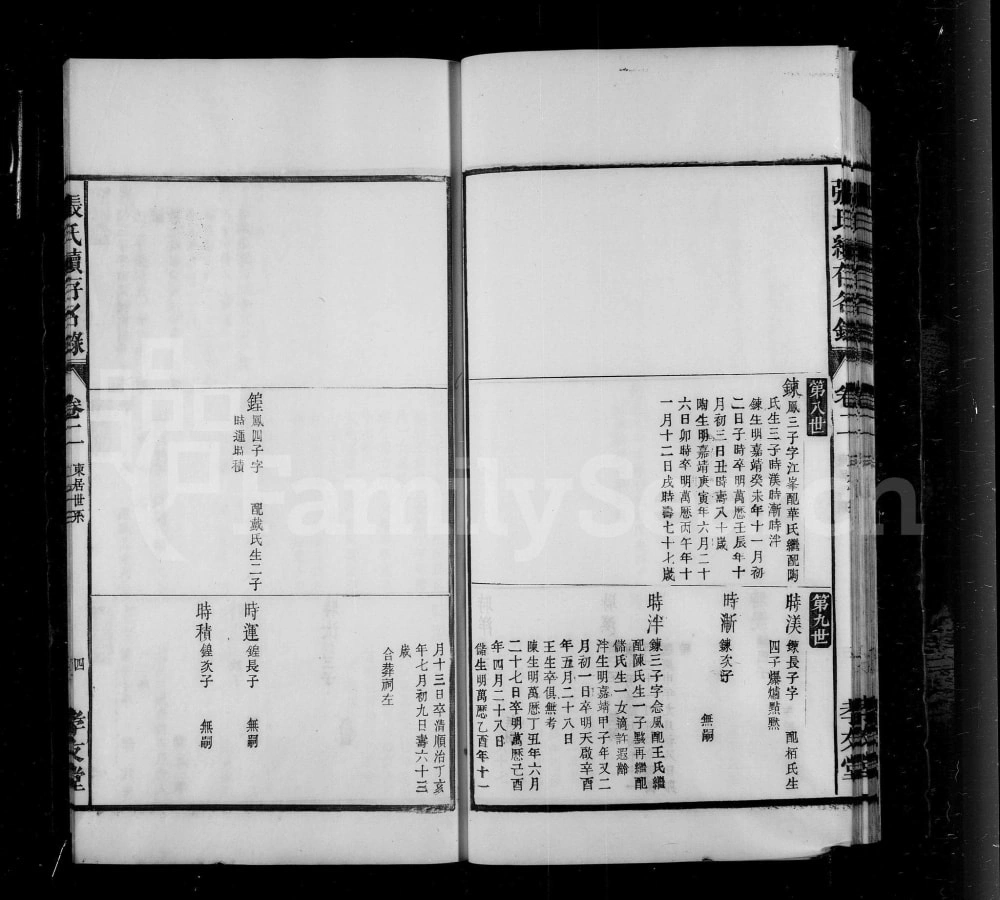 張氏續存名錄
卷二
第八世
鍊鳳三子字江峯配華氏繼配陶
氏生三子時渼時漸時泮
鍊生明嘉靖癸未年十一月初
二日子時卒明萬歷壬辰年十
月初三日丑時壽八十歲
陶生明嘉靖庚寅年六月二十
六日卯時卒明萬歷丙午年十
一月十二日戌時壽七十七歲
第九世
時渼鍊長子字 配栢氏生
四子爆爐點㸃
時漸鍊次子 無嗣
時泮鍊三子字念鳳配王氏繼
配陳氏生一子㸃再繼配
儲氏生一女適許遐齡
泮生明嘉靖甲子年又二
月初一日卒明天啟辛酉
年五月二十八日
王生卒俱無考
陳生明萬歷丁丑年六月
二十七日卒明萬歷己酉
年四月二十八日
儲生明萬歷乙酉年十一
月十三日卒清順治丁亥
年七月初九日壽六十三
歲
合葬祠左
鍠鳳四子字 配戴氏生二子
時運時積
時運鍠長子 無嗣
時積鍠次子 無嗣
張氏續存名錄
卷二
東居世系
四
孝友堂
孝友堂
FamilySearch